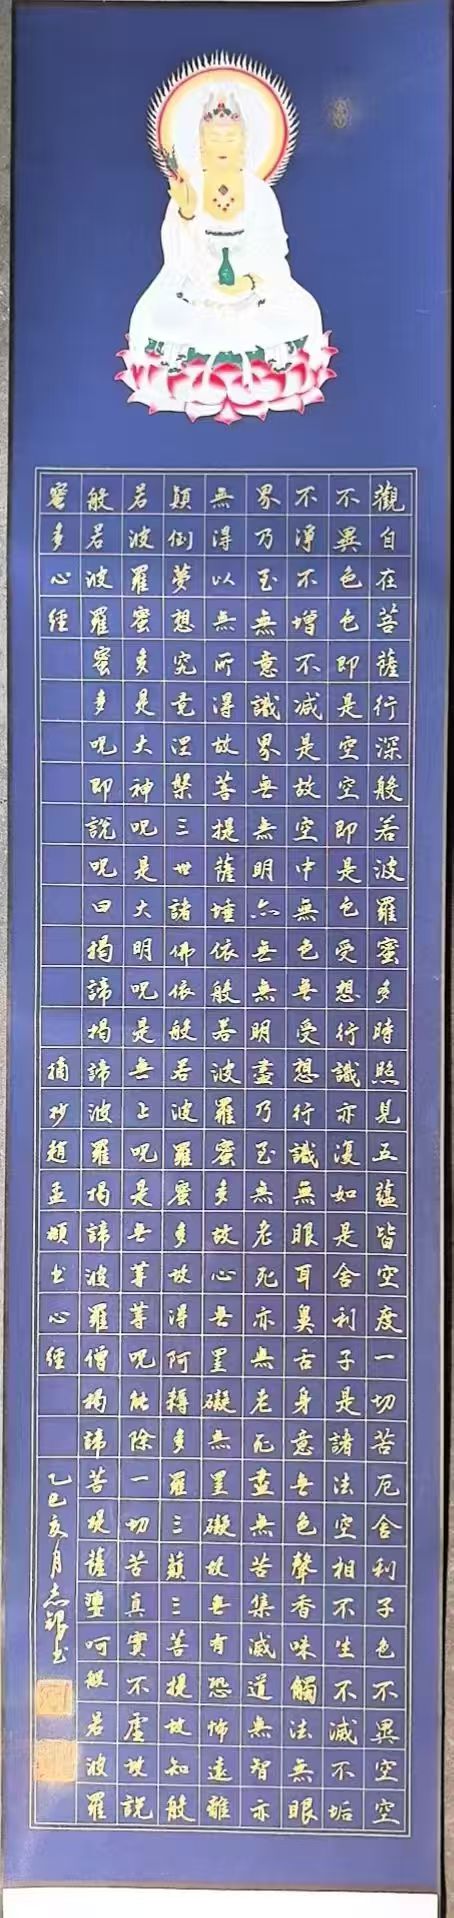 觀自在菩薩行深般若波羅蜜多時照見五蘊皆空度一切苦厄舍利子色不異空空
不異色色即是空空即是色受想行識亦復如是舍利子是諸法空相不生不滅不垢
不淨不增不減是故空中無色無受想行識無眼耳鼻舌身意無色聲香味觸法無眼
界乃至無意識界無無明亦無無明盡乃至無老死亦無老死盡無苦集滅道無智亦
無得以無所得故菩提薩埵依般若波羅蜜多故心無罣礙無罣礙故無有恐怖遠離
顛倒夢想究竟涅槃三世諸佛依般若波羅蜜多故得阿耨多羅三藐三菩提故知般
若波羅蜜多是大神呪是大明呪是無上呪是無等等呪能除一切苦真實不虛故說
般若波羅蜜多呪即說呪曰揭諦揭諦波羅揭諦波羅僧揭諦菩提薩婆呵般若波羅
蜜多心經
摘抄趙孟頫書心經
乙巳亥月志書